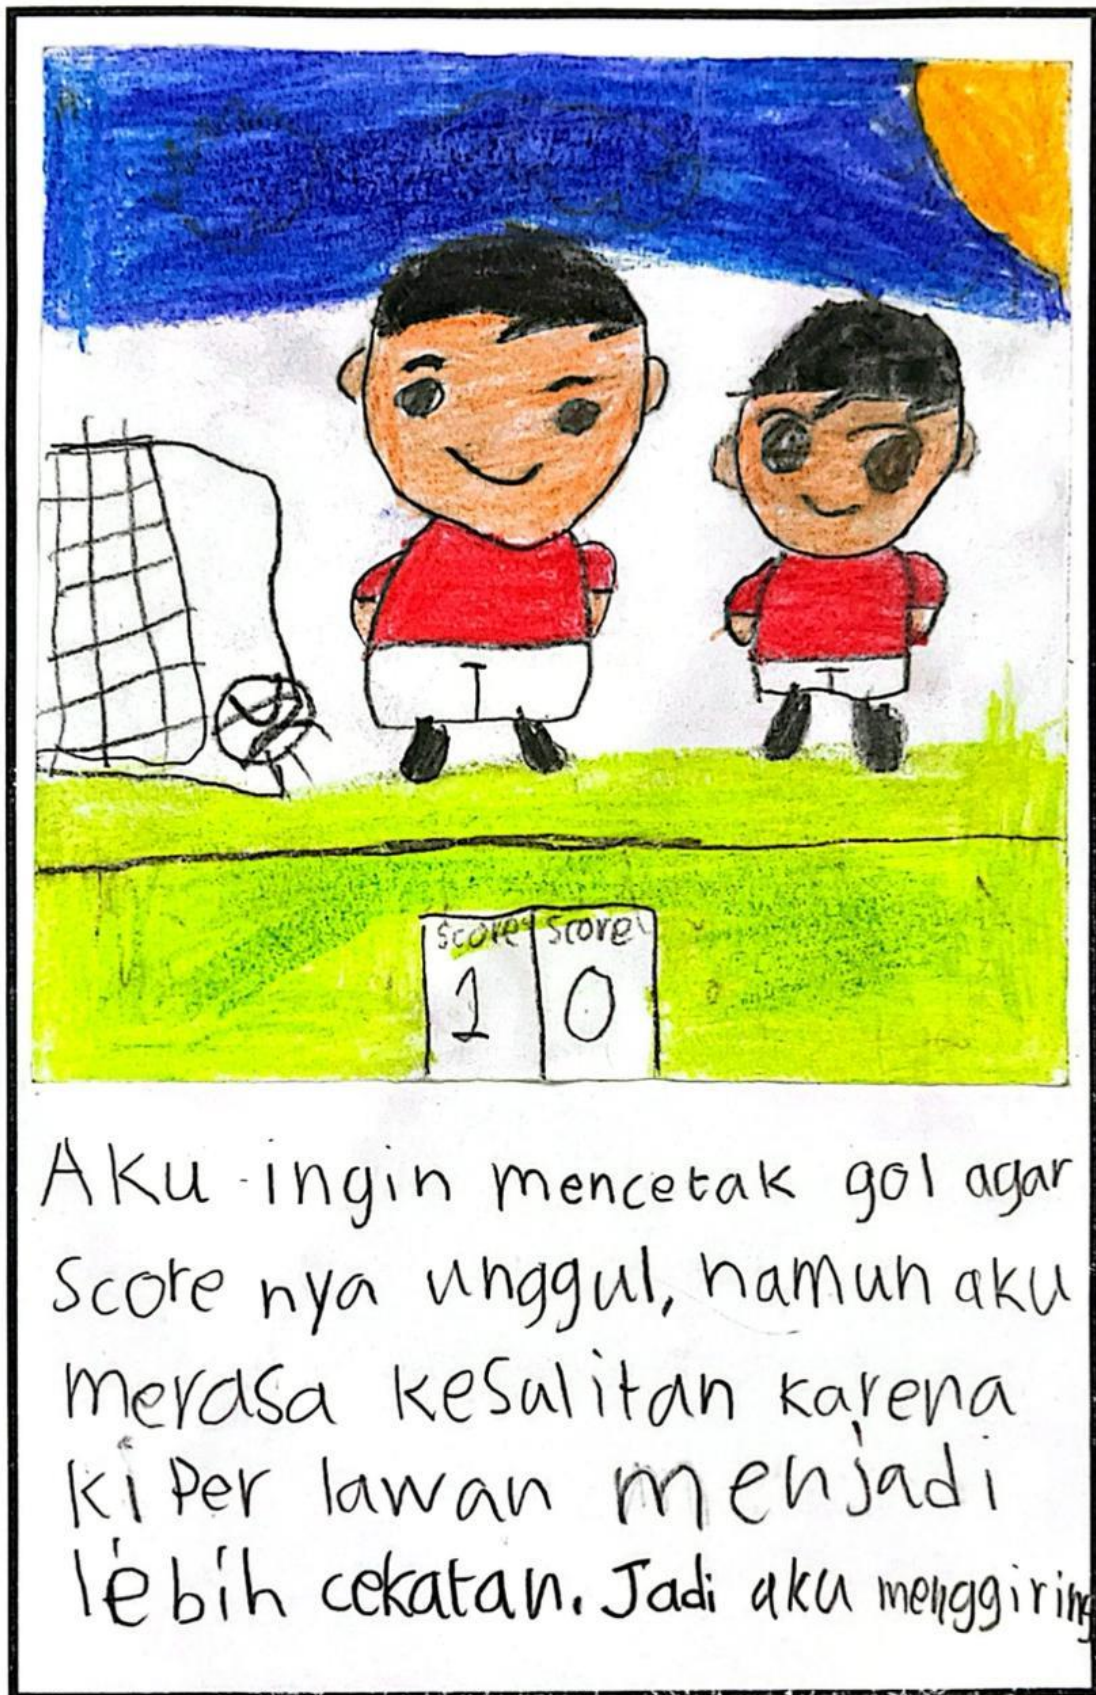 score score
1 0
Aku ingin mencetak gol agar
Score nya unggul, namun aku
merasa kesulitan karena
kiper lawan menjadi
lebih cekatan. Jadi aku menggiring